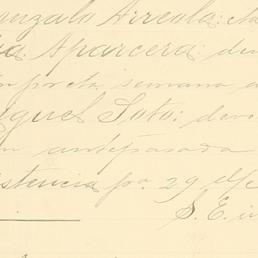 onzalo Arreola; 
Aparcera; dev
semana
iguel Soto; devo
antepasada
stencia pa. 29 de
S. E. u